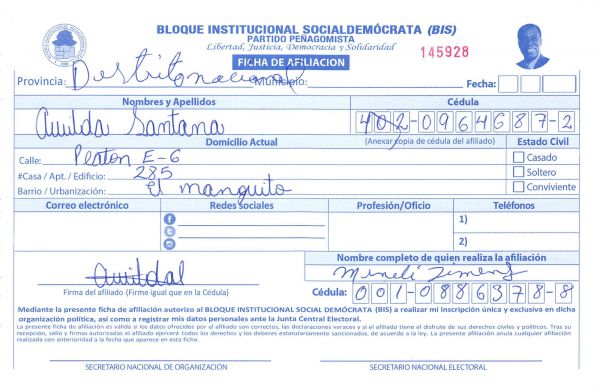 BLOQUE INSTITUCIONAL SOCIALDEMÓCRATA (BIS)
PARTIDO PEÑAGOMISTA
Libertad, Justicia, Democracia y Solidaridad
145928
FICHA DE AFILIACION
Provincia: Distrito nacional Municipio: Fecha:
Nombres y Apellidos Cédula
Amilda Santana 402-0964687-2
(Anexar copia de cédula del afiliado)
Domicilio Actual Estado Civil
Calle: Peaton E-6 Casado
#Casa / Apt. / Edificio: 285 Soltero
Barrio / Urbanización: El manguito Conviviente
Correo electrónico Redes sociales Profesión/Oficio Teléfonos
1)
2)
Nombre completo de quien realiza la afiliación
Firma del afiliado (Firme igual que en la Cédula)
Cédula: 001-0886378-8
Mediante la presente ficha de afiliación autorizo al BLOQUE INSTITUCIONAL SOCIAL DEMÓCRATA (BIS) a realizar mi inscripción única y exclusiva en dicha
organización política, así como a registrar mis datos personales ante la Junta Central Electoral.
La presente ficha de afiliación es válida si los datos ofrecidos por el afiliado son correctos, las declaraciones veraces y si el afiliado tiene el disfrute de sus derechos civiles y políticos. Tras su
recepción, sello y firmas autorizadas el afiliado ejercerá todos los derechos y los deberes estatutariamente sancionados, de acuerdo a la ley. La presente afiliación anula cualquier afiliación
realizada con anterioridad a la fecha que aparece en esta ficha.
SECRETARIO NACIONAL DE ORGANIZACIÓN SECRETARIO NACIONAL ELECTORAL